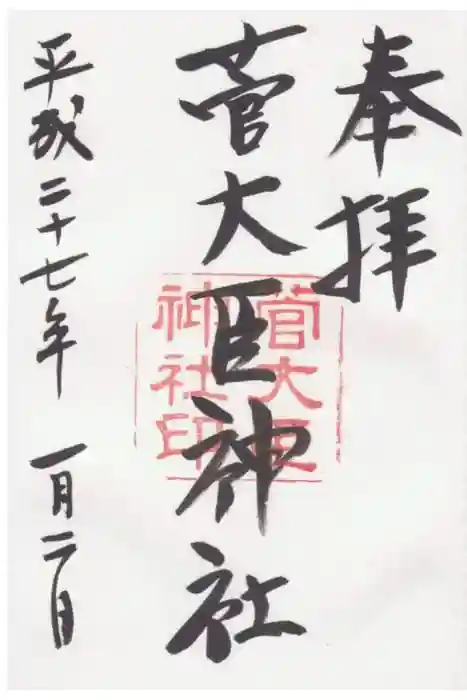 奉拝
菅大臣神社
菅大臣
神社印
平成二十七年 一月二日